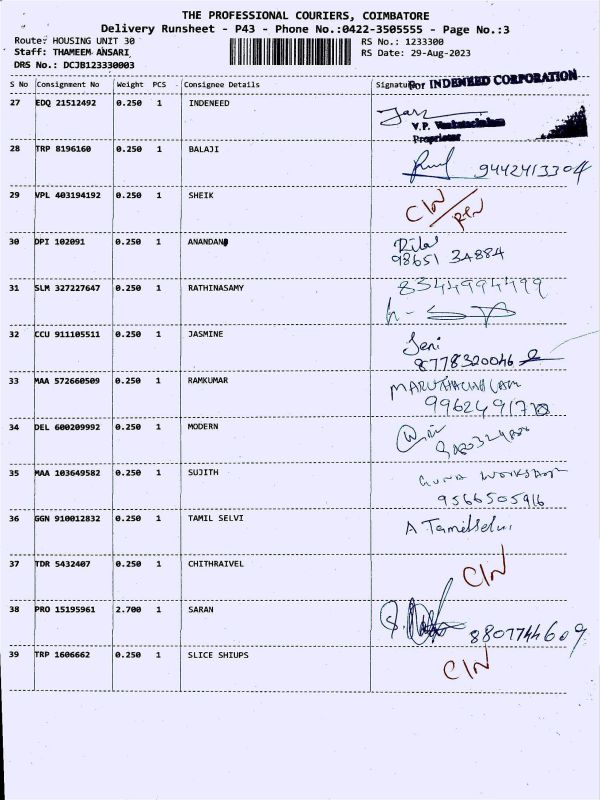 THE PROFESSIONAL COURIERS, COIMBATORE
Delivery Runsheet - P43 - Phone No.:0422-3505555 - Page No.:3
Route: HOUSING UNIT 30
RS No.: 1233300
Staff: THAMEEM ANSARI
RS Date: 29-Aug-2023
DRS No.: DCJB123330003
S No Consignment No Weight PCS Consignee Details Signature
For INDENEED CORPORATION
27 EDQ 21512492 0.250 1 INDENEED
V.P.
Proprietor
28 TRP 8196160 0.250 1 BALAJI
9442413304
29 VPL 403194192 0.250 1 SHEIK
CIN
30 DPI 102091 0.250 1 ANANDAN
98651 34884
31 SLM 327227647 0.250 1 RATHINASAMY
8344994499
32 CCU 911105511 0.250 1 JASMINE
Jeni
8778320046
33 MAA 572660509 0.250 1 RAMKUMAR
34 DEL 600209992 0.250 1 MODERN
35 MAA 103649582 0.250 1 SUJITH
GUNA WORKSHOP
9566505916
36 GGN 910012832 0.250 1 TAMIL SELVI
A Tamilselvi
37 TDR 5432407 0.250 1 CHITHRAIVEL
CIN
38 PRO 15195961 2.700 1 SARAN
8807744609
39 TRP 1606662 0.250 1 SLICE SHIUPS
CIN